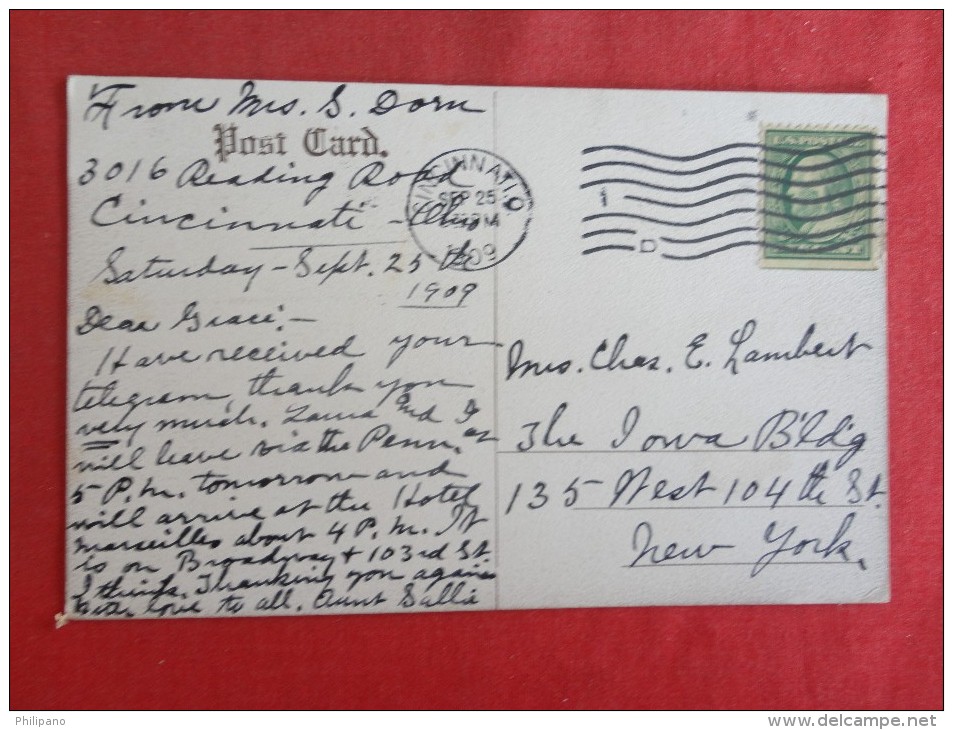 From Mrs. S. Dorn
Post Card.
3016 Reading Road
Cincinnati - Ohio
Saturday - Sept. 25th
1909
Dear Grace; -
Have received your
telegram, thank you
very much. Laura and I
will leave via the Penn. at
5 P.M. tomorrow and
will arrive at the Hotel
Marseilles about 4 P.M. It
is on Broadway & 103rd St.
I think. Thanking you again
with love to all. Aunt Sallie
CINCINNATI, O
SEP 25
PM
1909
1
D
Mrs. Chas. E. Lambert
The Iowa B'ldg
135 West 104th St.
New York.
Philipano
www.delcampe.net